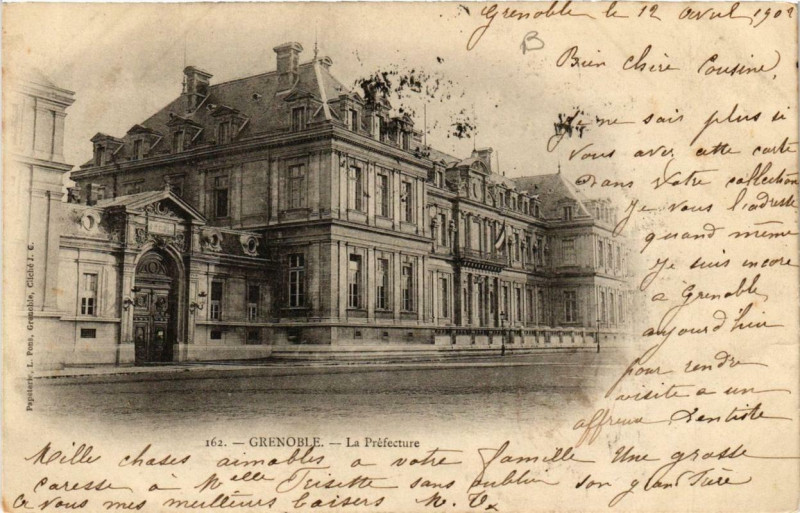 Grenoble le 12 avril 1902
B
Bien chère Cousine,
Je ne sais plus si
vous avez cette carte
Dans votre collection
Je vous l'adresse
quand même
Je suis encore
à Grenoble
aujourd'hui
pour rendre
visite a un
affreux Dentiste
Papeterie L. Pons, Grenoble, Cliché J. C.
162. — GRENOBLE. — La Préfecture
Mille choses aimables a votre famille Une grosse
caresse à Melle sans oublier son grand Père
a vous mes meilleurs baisers